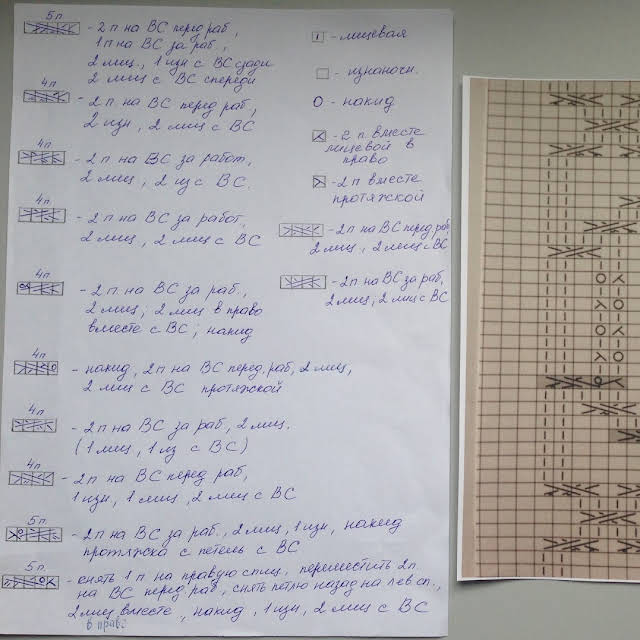 5п
- 2 п на ВС перед раб,
1 п на ВС за раб,
2 лиц, 1 изн с ВС сзади
2 лиц с ВС спереди
4п
- 2 п. на ВС перед раб,
2 изн, 2 лиц с ВС
4п
- 2 п. на ВС за работ,
2 лиц, 2 из с ВС.
4п
- 2 п на ВС за работ,
2 лиц, 2 лиц с ВС
4п
- 2 п на ВС за раб,
2 лиц; 2 лиц в право
вместе с ВС; накид
4п
- накид, 2п на ВС перед. раб, 2 лиц,
2 лиц с ВС протяжкой
4п
- 2п на ВС за раб, 2 лиц.
(1 лиц, 1 из с ВС)
4п
- 2п на ВС перед раб,
1 изн, 1 лиц, 2 лиц с ВС
5п
- 2п на ВС за раб., 2 лиц, 1 изн, накид
протяжка с петель с ВС
5п.
- снять 1 п на правую спиц, переместить 2п.
на ВС перед раб, снять петлю назад на лев сп.,
2 лиц вместе, накид, 1 изн, 2 лиц с ВС
в прав.
- лицевая
- изнаночн.
- накид
- 2 п вместе
лицевой в
право
- 2 п вместе
протяжкой
- 2 п на ВС перед раб
2 лиц, 2 лиц с ВС
- 2 п на ВС за раб,
2 лиц, 2 лиц с ВС